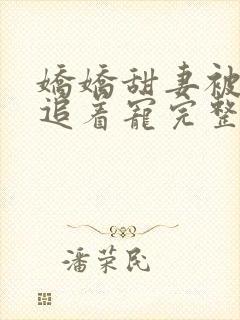 嬌嬌甜妻被
追着寵完整
潘荣民